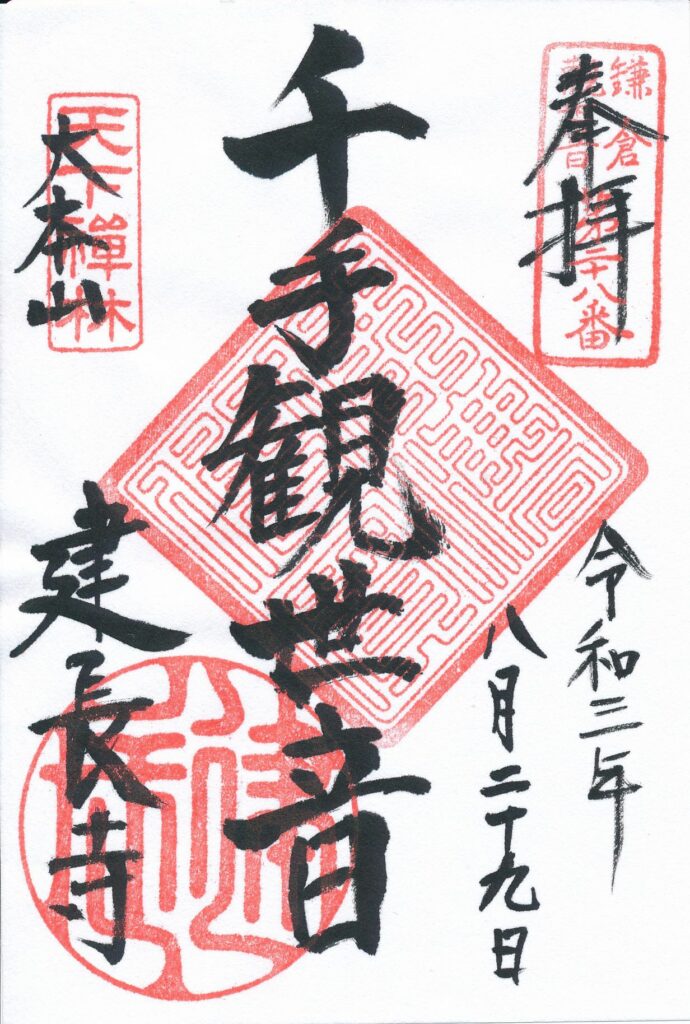 奉拝
鎌倉
観音
第二十八番
令和三年
八月二十九日
千手観世音
天下禅林
大本山
建長寺